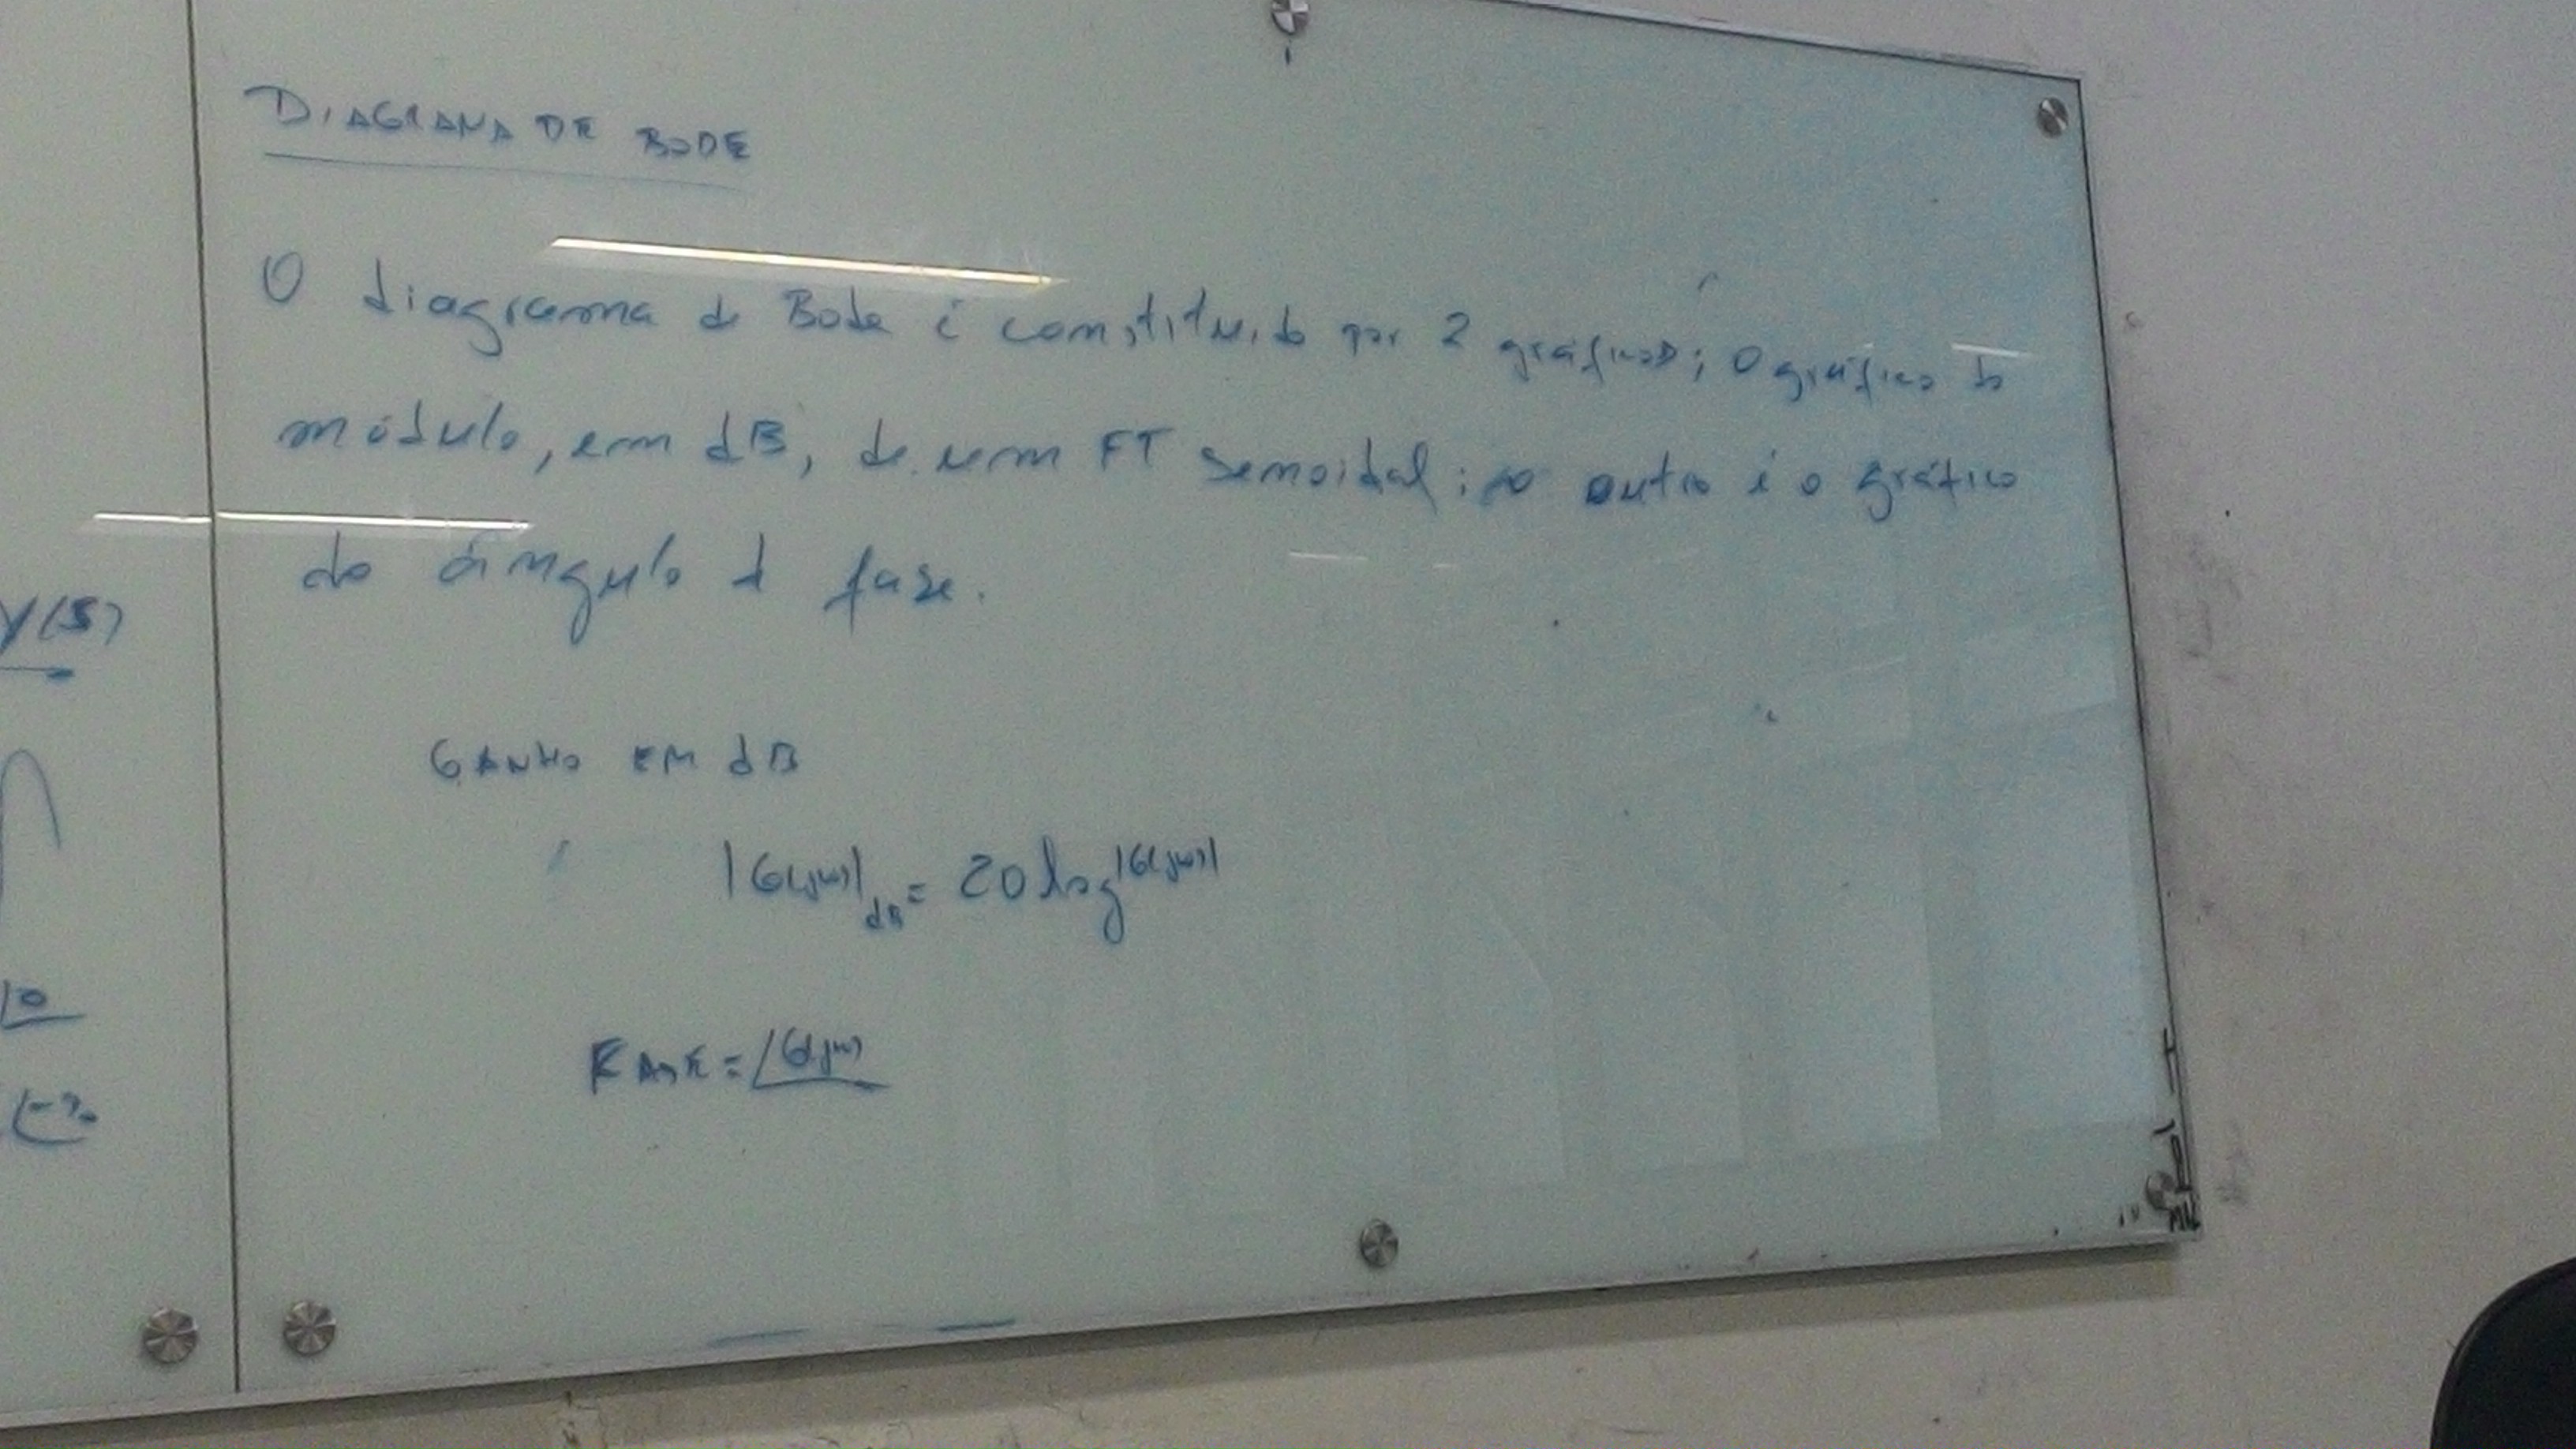 DIAGRAMA DE BODE
O diagrama de Bode é constituido por 2 gráficos; o gráfico do
módulo, em dB, de uma FT senoidal; o outro é o gráfico
do ângulo d fase.
GANHO EM dB
|G(jω)|dB = 20 log|G(jω)|
FASE = ∠G(jω)
Y(S)